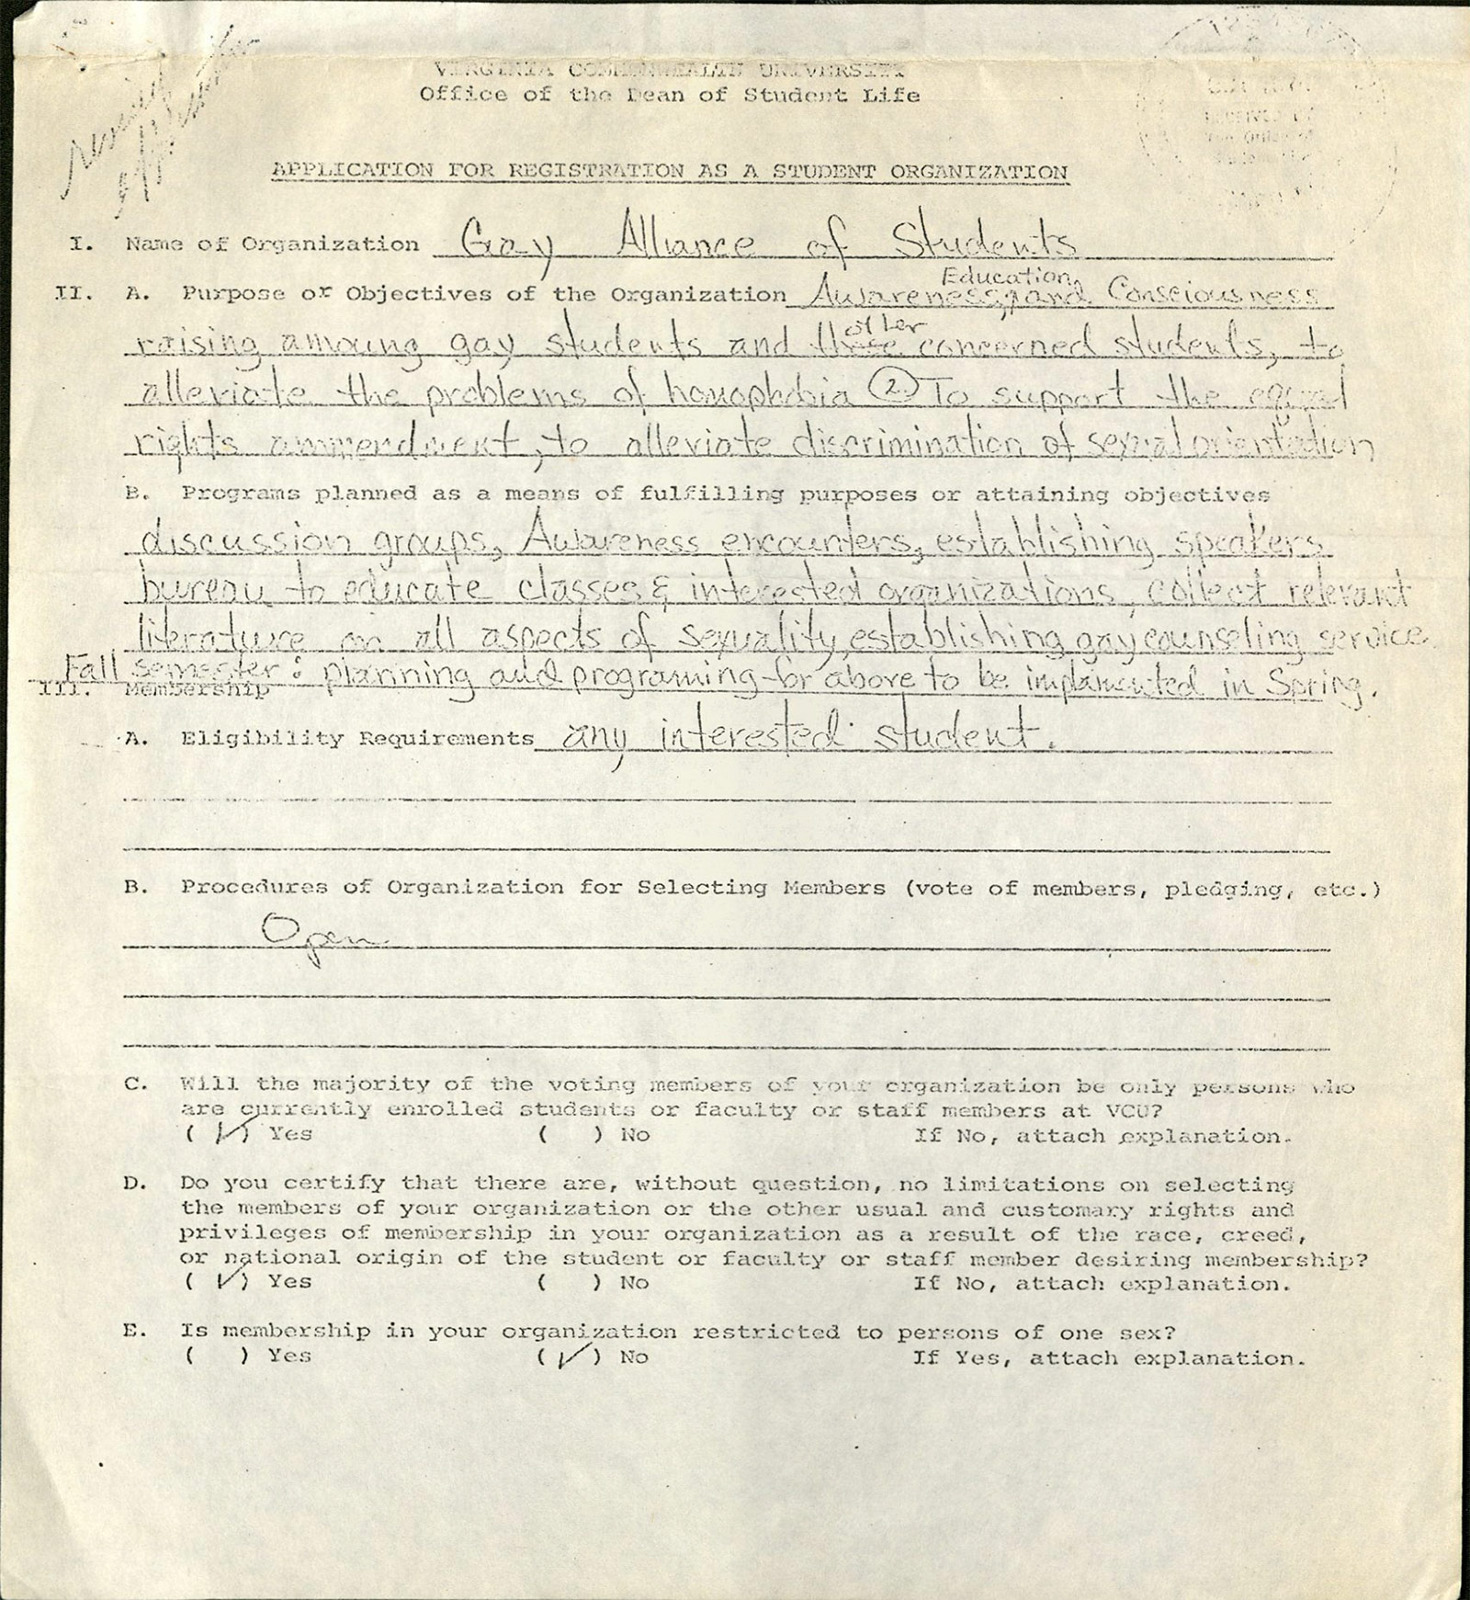 VIRGINIA COMMONWEALTH UNIVERSITY
Office of the Dean of Student Life
APPLICATION FOR REGISTRATION AS A STUDENT ORGANIZATION
I. Name of Organization Gay Alliance of Students
Education,
II. A. Purpose or Objectives of the Organization Awareness, and Consciousness
other
raising amoung gay students and these concerned students, to
alleviate the problems of homophobia (2) To support the equal
rights ammendment, to alleviate discrimination of sexual orientation
B. Programs planned as a means of fulfilling purposes or attaining objectives
discussion groups, Awareness encounters, establishing speakers
bureau to educate classes & interested organizations, collect relevant
literature on all aspects of sexuality, establishing gay counseling service
Fall semester: planning and programing for above to be implamented in Spring.
III. Membership
A. Eligibility Requirements any interested student.
B. Procedures of Organization for Selecting Members (vote of members, pledging, etc.)
Open
C. Will the majority of the voting members of your organization be only persons who
are currently enrolled students or faculty or staff members at VCU?
( ✓ ) Yes ( ) No If No, attach explanation.
D. Do you certify that there are, without question, no limitations on selecting
the members of your organization or the other usual and customary rights and
privileges of membership in your organization as a result of the race, creed,
or national origin of the student or faculty or staff member desiring membership?
( ✓ ) Yes ( ) No If No, attach explanation.
E. Is membership in your organization restricted to persons of one sex?
( ) Yes ( ✓ ) No If Yes, attach explanation.